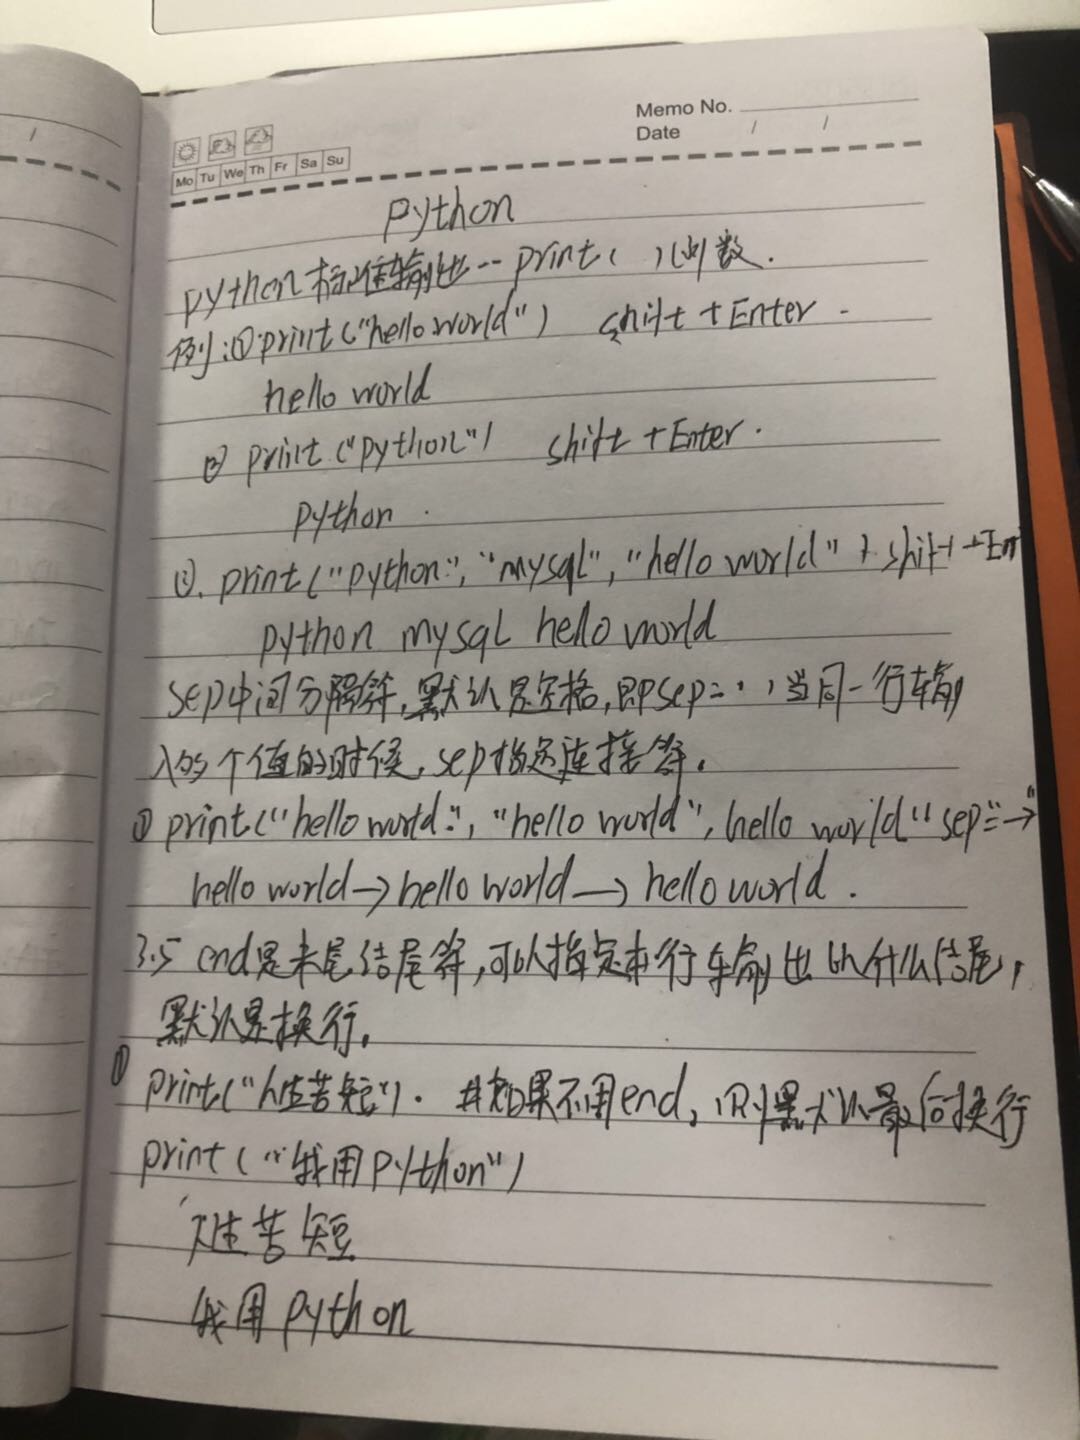 Memo No.
Date / /
Mo Tu We Th Fr Sa Su
python
python标准输出--print( )函数.
例:①print("hello world") shift+Enter.
hello world
② print("python") shift+Enter.
python.
print("python", "mysql", "hello world") shift+En
python mysql hello world
sep中间分隔符,默认是空格,即sep=' ',当同一行输
入多个值的时候,sep指定连接符.
① print("hello world", "hello world", hello world" sep="→"
hello world→hello world→hello world.
3.5 end是末尾结尾符,可以指定本行输出以什么结尾,
默认是换行.
①
print("人生苦短"). #如果不用end,则默认最后换行
print("我用python")
人生苦短
我用python